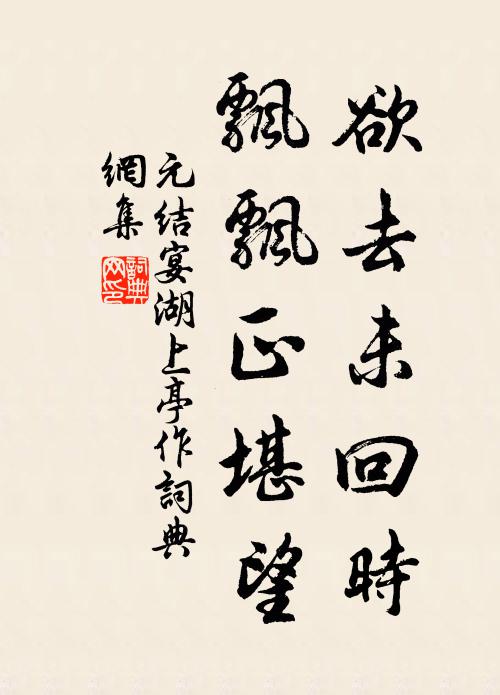 欲去未回時
飄飄正堪望
元結宴湖上亭作詞典
網集
詞典
網印